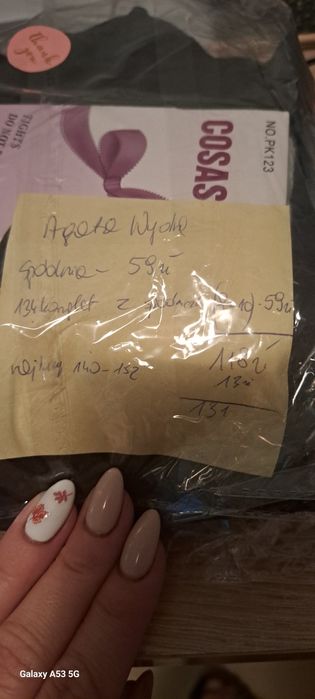 thank you
TIGHTS
DO NOT
COSAS
NO.PK123
Agata
spodnie - 59zł
134 komplet z - 59zł
118zł
140-152 13zł
131
Galaxy A53 5G